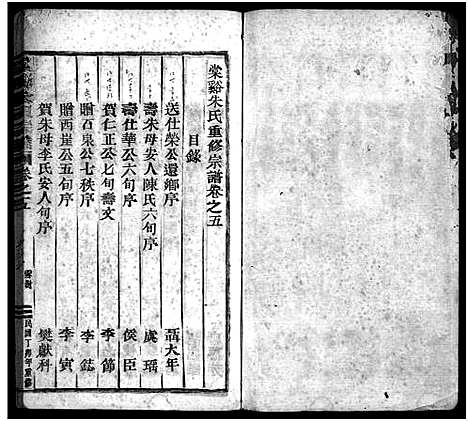 棠谿朱氏重修宗譜卷之五
目錄
送仕榮公還鄉序 聶大年
壽朱母安人陳氏六旬序 虞瑀
壽仕華公六旬序 侯臣
賀仁正公七旬壽文 李節
贈石泉公七秩序 李鋕
贈西崖公五旬序 李寅
賀朱母李氏安人旬序 樊獻科
卷之五
民國丁
年重修